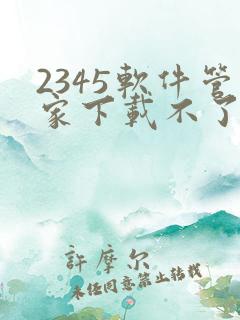 2345軟件管
家下載不了
許摩尔
未经同意禁止转载